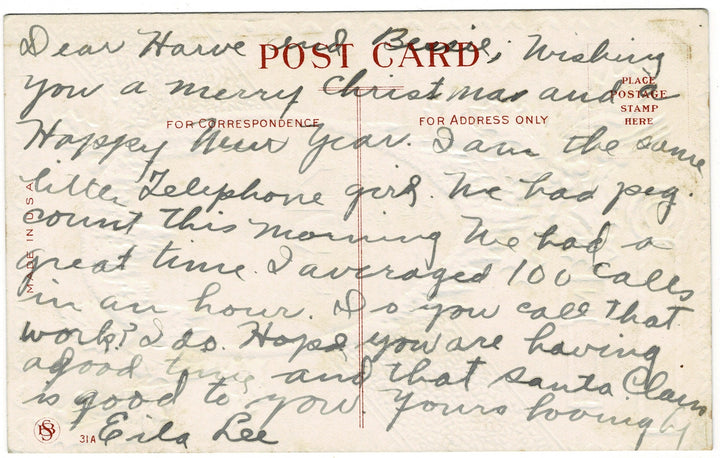 POST CARD
PLACE
POSTAGE
STAMP
HERE
FOR CORRESPONDENCE
FOR ADDRESS ONLY
MADE IN U.S.A.
Dear Harve and Bessie, Wishing
you a merry Christmas and a
Happy New Year. I am the same
little Telephone girl. We had peg.
count this morning We had a
great time. I averaged 100 calls
in an hour. Do you call that
work? I do. Hope you are having
a good time and that Santa Claus
is good to you Yours lovingly
Eila Lee
31A